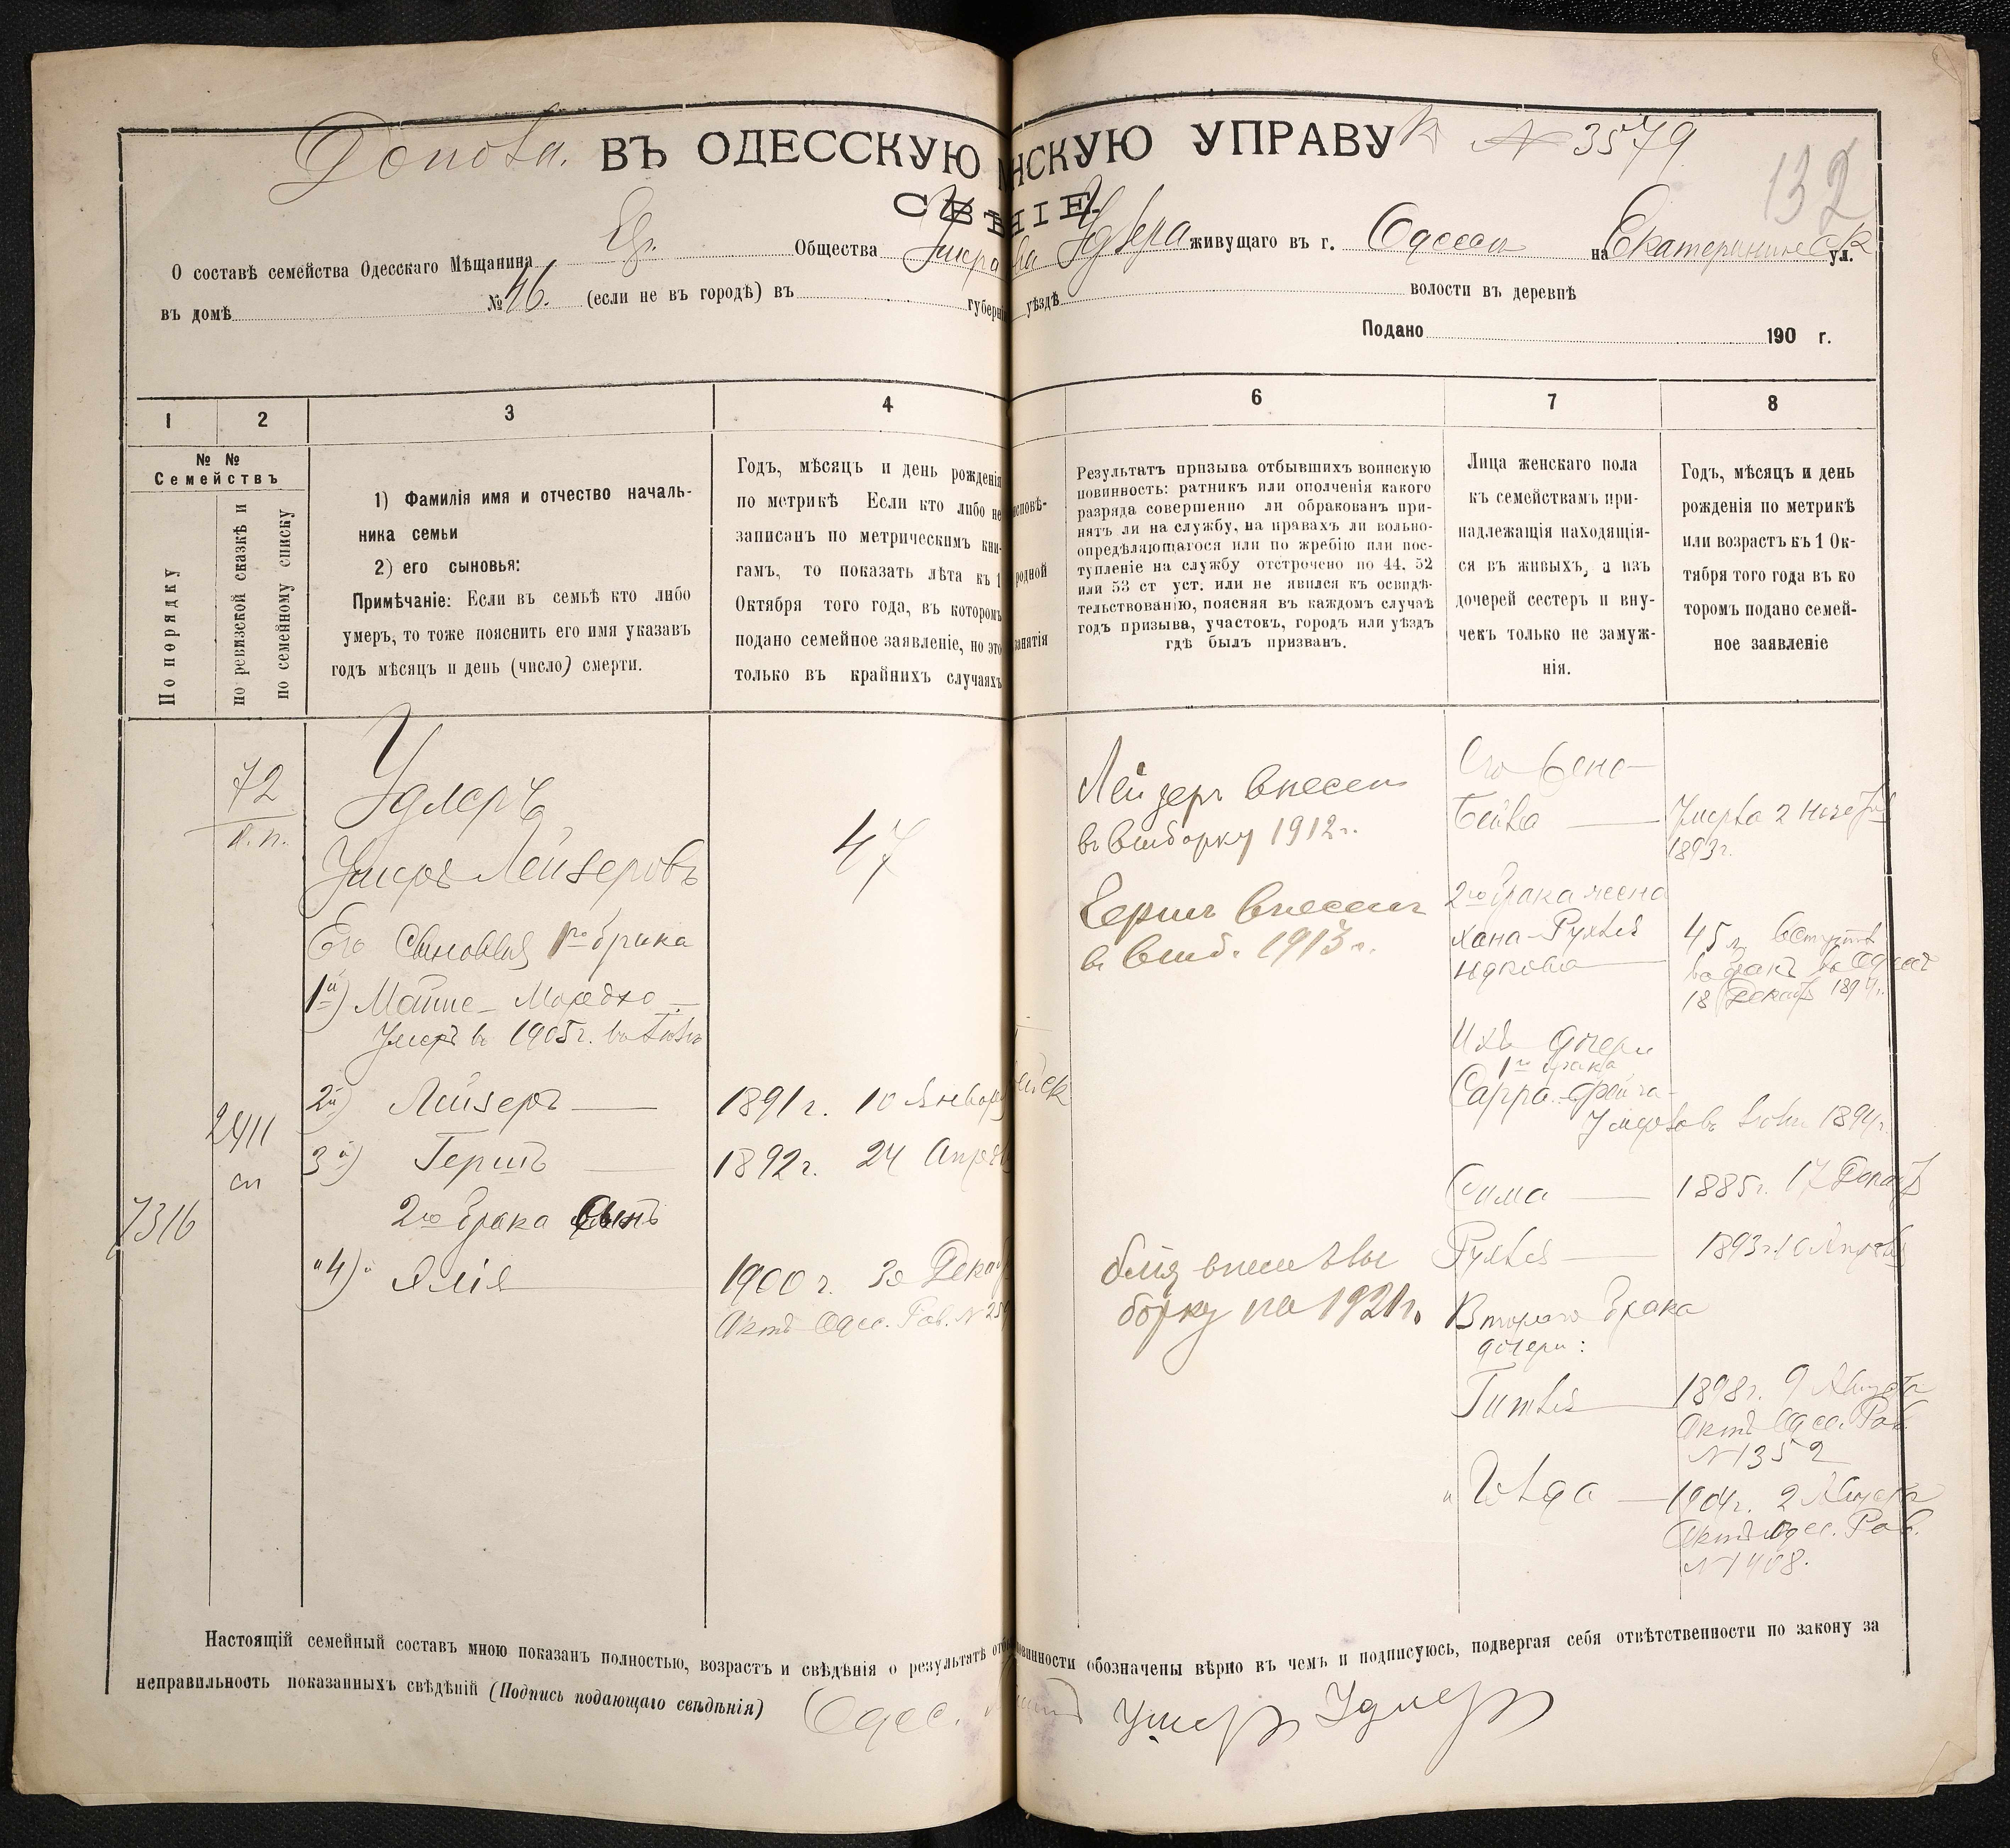 ВЪ ОДЕССКУЮ НСКУЮ УПРАВУ № 3579
132
О составѣ семейства Одесскаго Мѣщанина Евр. Общества живущаго въ г. Одессѣ на ул.
въ домѣ № 46. (если не въ городѣ) въ губерні уѣздѣ волости въ деревнѣ
Подано 190 г.
1 2 3 4 6 7 8
№ №
Семействъ
По порядку
по ревизской сказкѣ и
по семейному списку
1) Фамилія имя и отчество началь-
ника семьи
2) его сыновья:
Примѣчаніе: Если въ семьѣ кто либо
умеръ, то тоже пояснить его имя указавъ
годъ мѣсяцъ и день (число) смерти.
Годъ, мѣсяцъ и день рожденія
по метрикѣ Если кто либо не
записанъ по метрическимъ кни-
гамъ, то показать лѣта къ 1
Октября того года, въ которомъ
подано семейное заявленіе, но это
только въ крайнихъ случаяхъ
исповѣ-
родной
занятія
Результатъ призыва отбывшихъ воинскую
повинность: ратникъ или ополченія какого
разряда совершенно ли обракованъ при-
нятъ ли на службу, на правахъ ли вольно-
опредѣляющагося или по жребію или пос-
тупленіе на службу отсрочено по 44. 52
или 53 ст уст. или не явился къ освидѣ-
тельствованію, поясняя въ каждомъ случаѣ
годъ призыва, участокъ, городъ или уѣздъ
гдѣ былъ призванъ.
Лица женскаго пола
къ семействамъ при-
надлежащія находящія-
ся въ живыхъ, а изъ
дочерей сестеръ и вну-
чекъ только не замуж-
нія.
Годъ, мѣсяцъ и день
рожденія по метрикѣ
или возрастъ къ 1 Ок-
тября того года въ ко
торомъ подано семей-
ное заявленіе
72
Удлеръ
Умеръ Лейзеровъ
47
Его Сыновья 1го брака
1й) Мошие-Мордко
Умеръ въ 1905 г.
2й) Лейзеръ 1891 г. 10 Январ
3й) Гершъ 1892 г. 24 Апрѣл
2411
сп
7316
2го брака сынъ
"4)" Элія 1900 г. 30 Декаб
Актъ Одес. Рав. №
Лейзеръ внесенъ
въ выборку 1912 г.
Гершъ внесенъ
въ выб. 1913 г.
Элія внесенъ въ вы
борку на 1921 г.
Его жена
Бейла Умерла 2 Ноября
1893 г.
2го брака жена
Хана-Рухля 45 л. вступилъ
Юдкова въ бракъ въ Одессѣ
18 Декабр
Ихъ дочери
1го брака
Сарра-Фейга
1894 г.
Сима 1885 г. 17 Декабр
Рухля 1893 г. 10 Апрѣля
Второго брака
дочери:
Гитля 1898 г. 9 Августа
Актъ Одес. Рав.
№ 1352
Голда 1904 г. 2 Августа
Актъ Одес. Рав.
№ 1408.
Настоящій семейный составъ мною показанъ полностью, возрастъ и свѣдѣнія о результатѣ отбы повинности обозначены вѣрно въ чемъ и подписуюсь, подвергая себя отвѣтственности по закону за
неправильность показанныхъ свѣдѣній (Подпись подающаго свѣдѣнія) Одес. Удлеръ